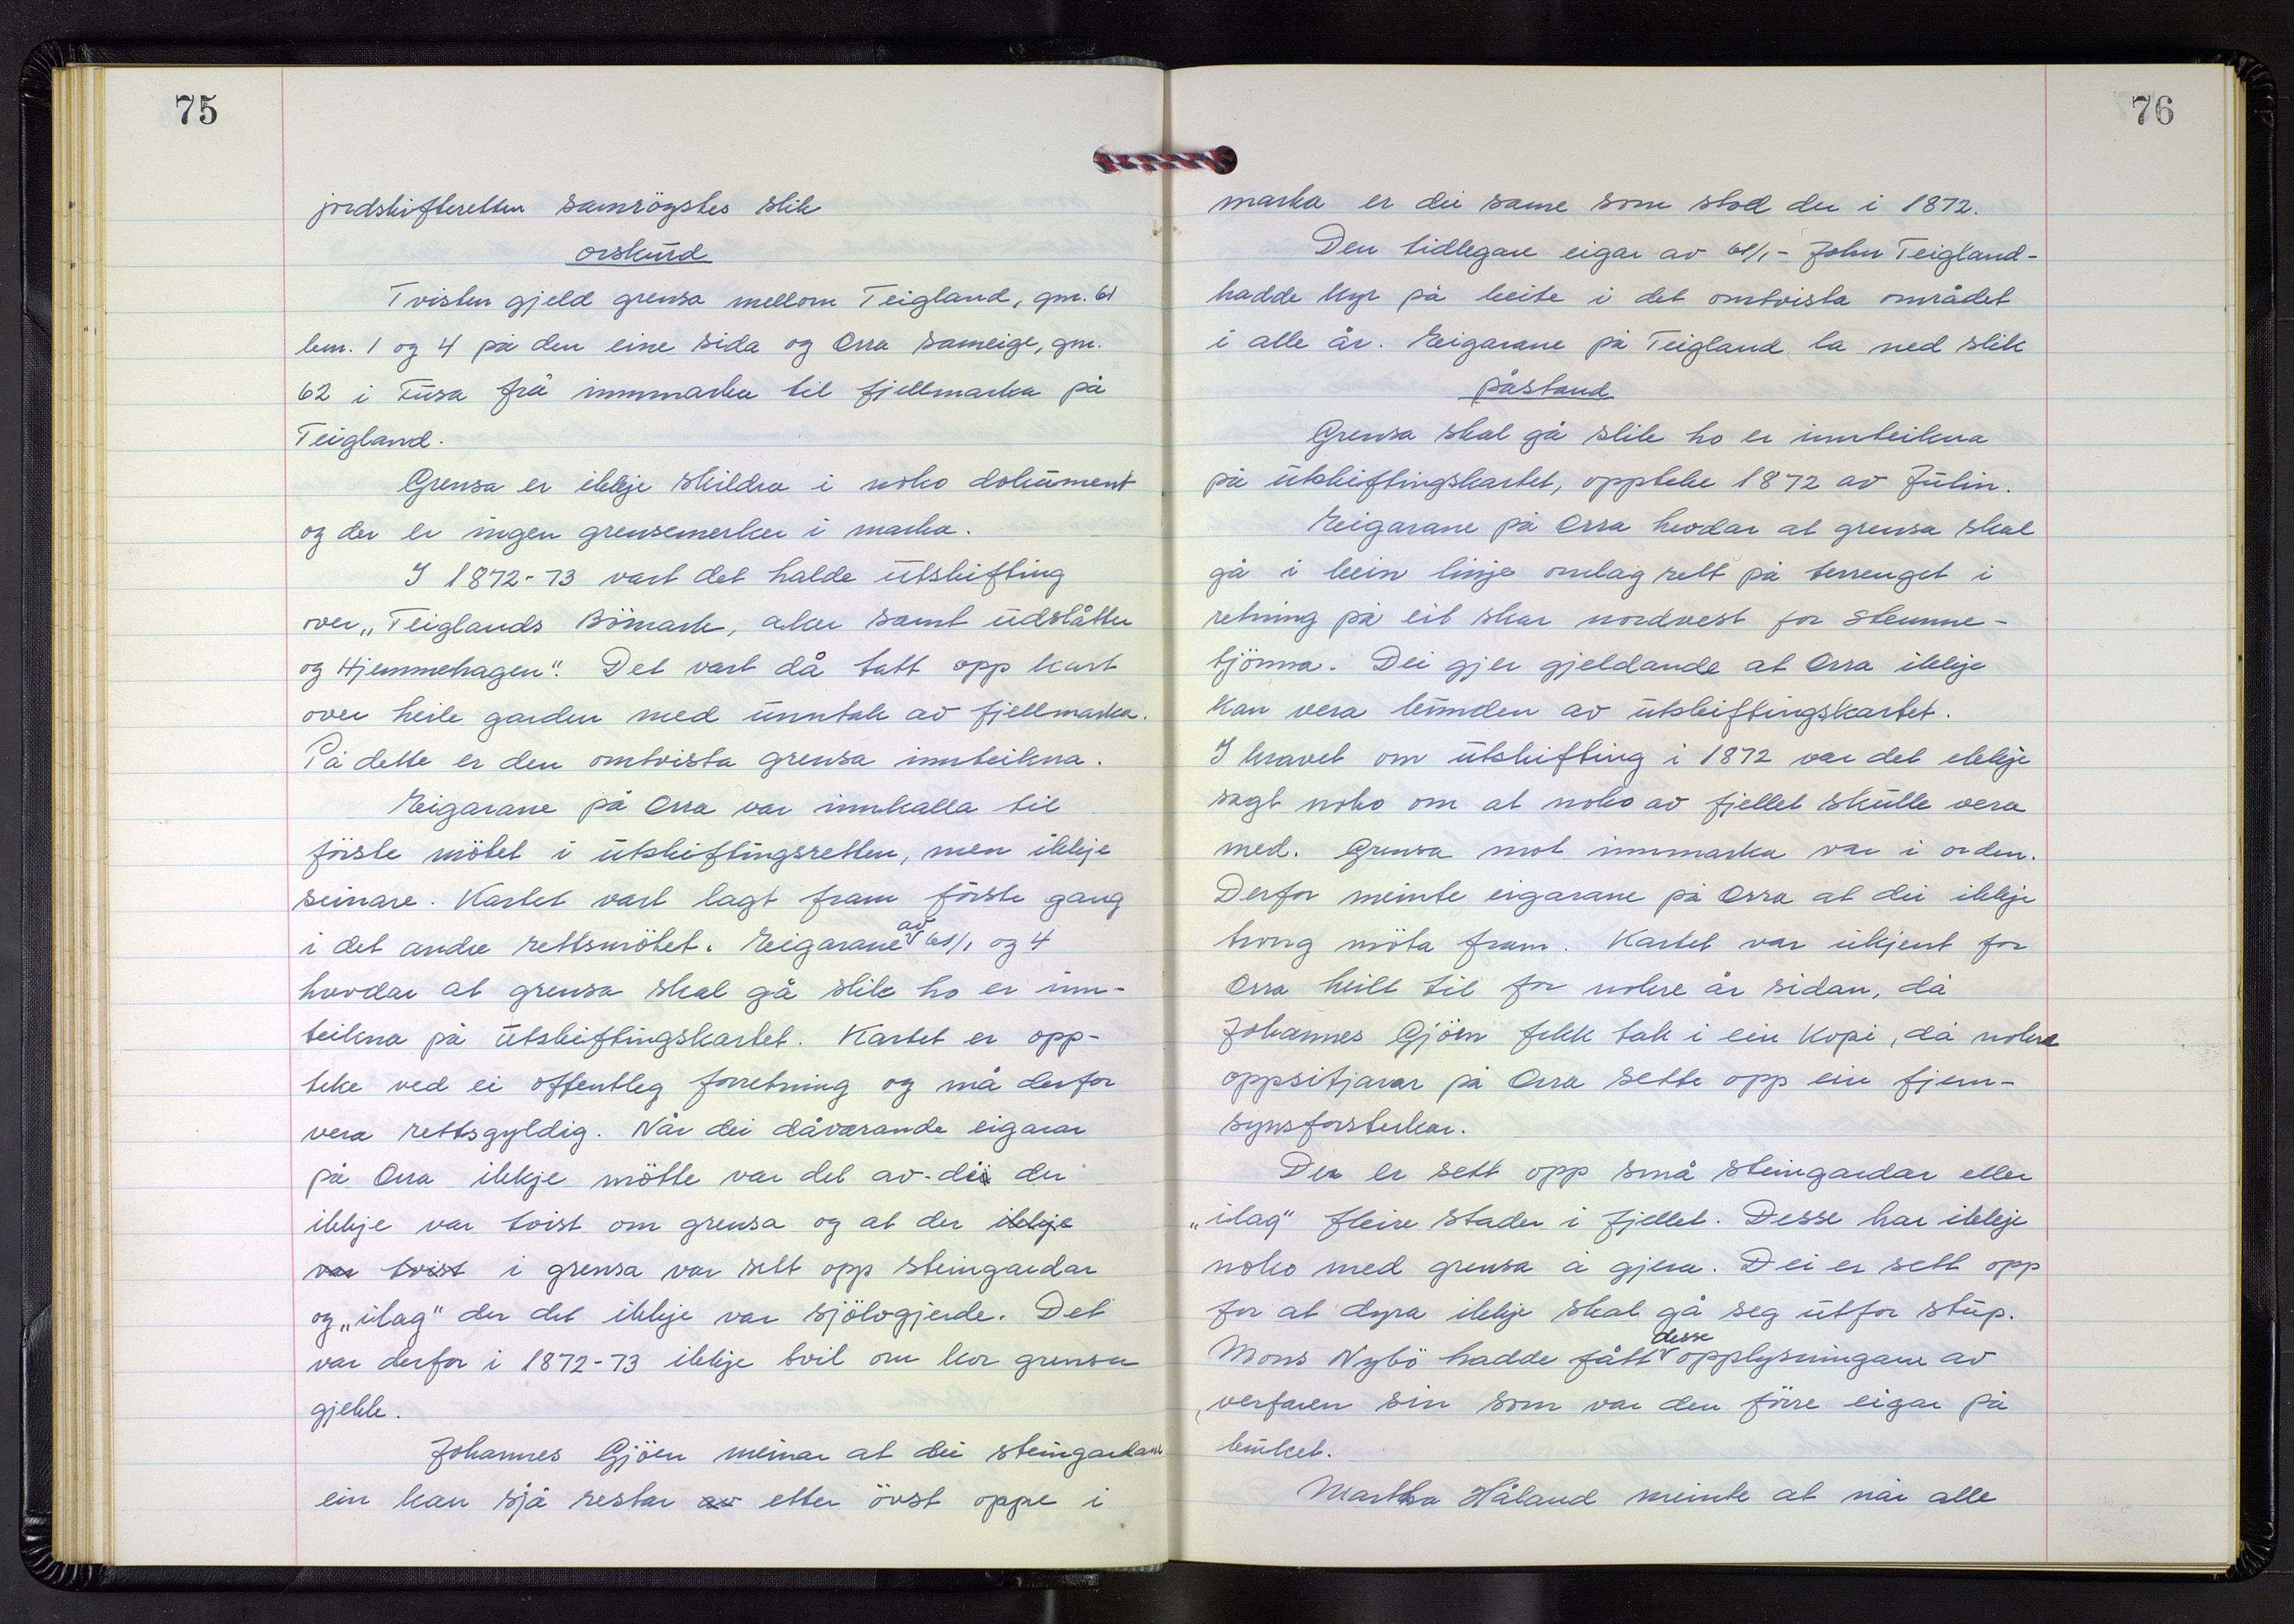 75
jordskifteretten samrøystes slik
orskurd
Tvisten gjeld grensa mellom Teigland, gnr. 61
bnr. 1 og 4 på den eine sida og Orra sameige, gnr.
62 i Fusa frå innmarka til fjellmarka på
Teigland.
Grensa er ikkje skildra i noko dokument
og der er ingen grensemerker i marka.
I 1872-73 vart det halde utskifting
over „Teiglands Bömark, aker samt udslåtter
og Hjemmehagen". Det vart då tatt opp kart
over heile garden med unntak av fjellmarka.
På dette er den omtvista grensa innteikna.
Eigarane på Orra var innkalla til
förste mötet i utskiftingsretten, men ikkje
seinare. Kartet vart lagt fram förste gang
i det andre rettsmötet. Eigarane av 61/1 og 4
hevdar at grensa skal gå slik ho er inn-
teikna på utskiftingskartet. Kartet er opp-
teke ved ei offentleg forretning og må derfor
vera rettsgyldig. Når dei dåverande eigarar
på Orra ikkje mötte var det av-di der
ikkje var tvist om grensa og at der ikkje
var tvist i grensa var sett opp steingardar
og „ilag" der det ikkje var sjölvgjerde. Det
var derfor i 1872-73 ikkje tvil om kor grensa
gjekk.
Johannes Gjöen meinar at dei steingardane
ein kan sjå restar av etter övst oppe i
76
marka er dei same som stod der i 1872.
Den tidlegare eigar av 61/1 - John Teigland -
hadde kyr på beite i det omtvista området
i alle år. Eigarane på Teigland la ned slik
påstand
Grensa skal gå slik ho er innteikna
på utskiftingskartet, oppteke 1872 av Julin.
Eigarane på Orra hevdar at grensa skal
gå i bein linje omlag rett på terrenget i
retning på eit skar nordvest for Stemme-
tjönna. Dei gjer gjeldande at Orra ikkje
kan vera bunden av utskiftingskartet.
I kravet om utskifting i 1872 var det ikkje
sagt noko om at noko av fjellet skulle vera
med. Grensa mot innmarka var i orden.
Derfor meinte eigarane på Orra at dei ikkje
trong möta fram. Kartet var ukjent for
Orra heilt til for nokre år sidan, då
Johannes Gjöen fekk tak i ein kopi, då nokre
oppsitjarar på Orra sette opp ein fjern-
synsforsterkar.
Der er sett opp små steingardar eller
„ilag" fleire stader i fjellet. Desse har ikkje
noko med grensa å gjera. Dei er sett opp
for at dyra ikkje skal gå seg utfor stup.
Mons Nybö hadde fått desse opplysningane av
verfaren sin som var den förre eigar på
bruket.
Martha Håland meinte at når alle